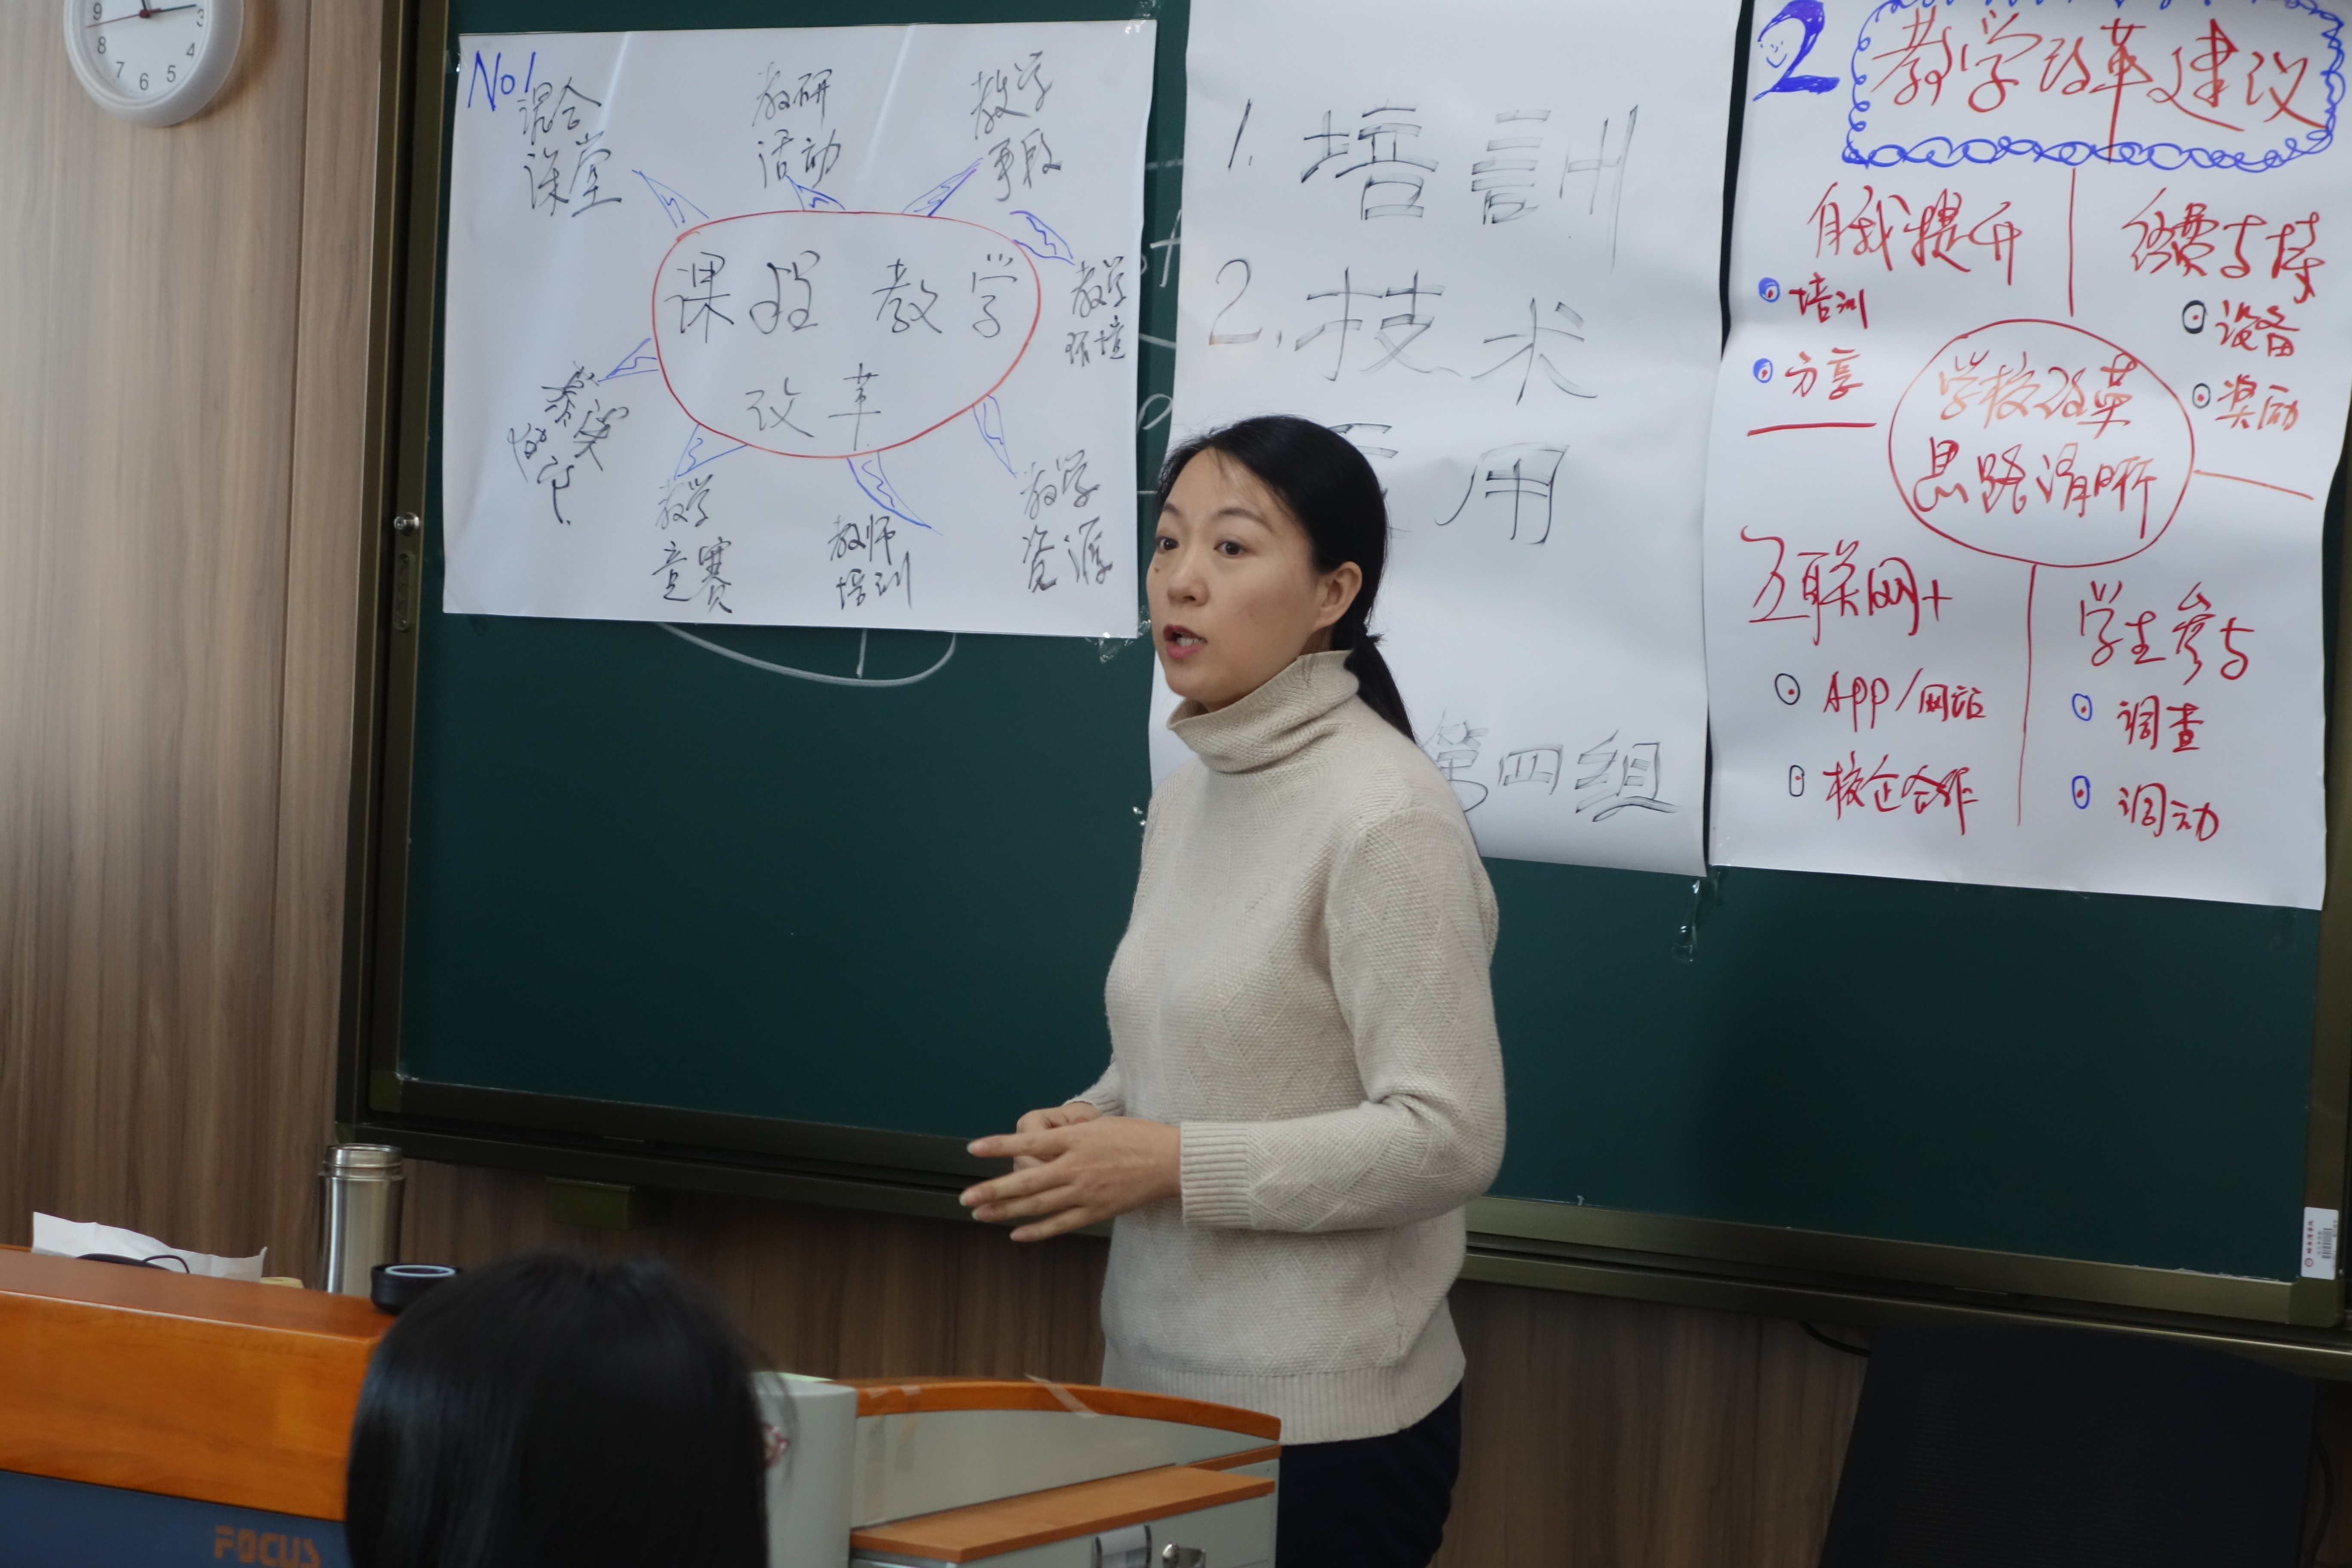 9
3
8
4
7
6
5
No1
混合
课堂
教研
活动
教学
手段
教学
环境
课程 教学
改革
教学
资源
教师
培训
教学
竞赛
1. 培訓
2. 技术
用
第四组
2
教学改革建议
自我提升
培训
分享
经费支持
设备
奖励
学校改革
思路清晰
互联网+
APP/网站
校企合作
学生参与
调查
调动
FOCUS